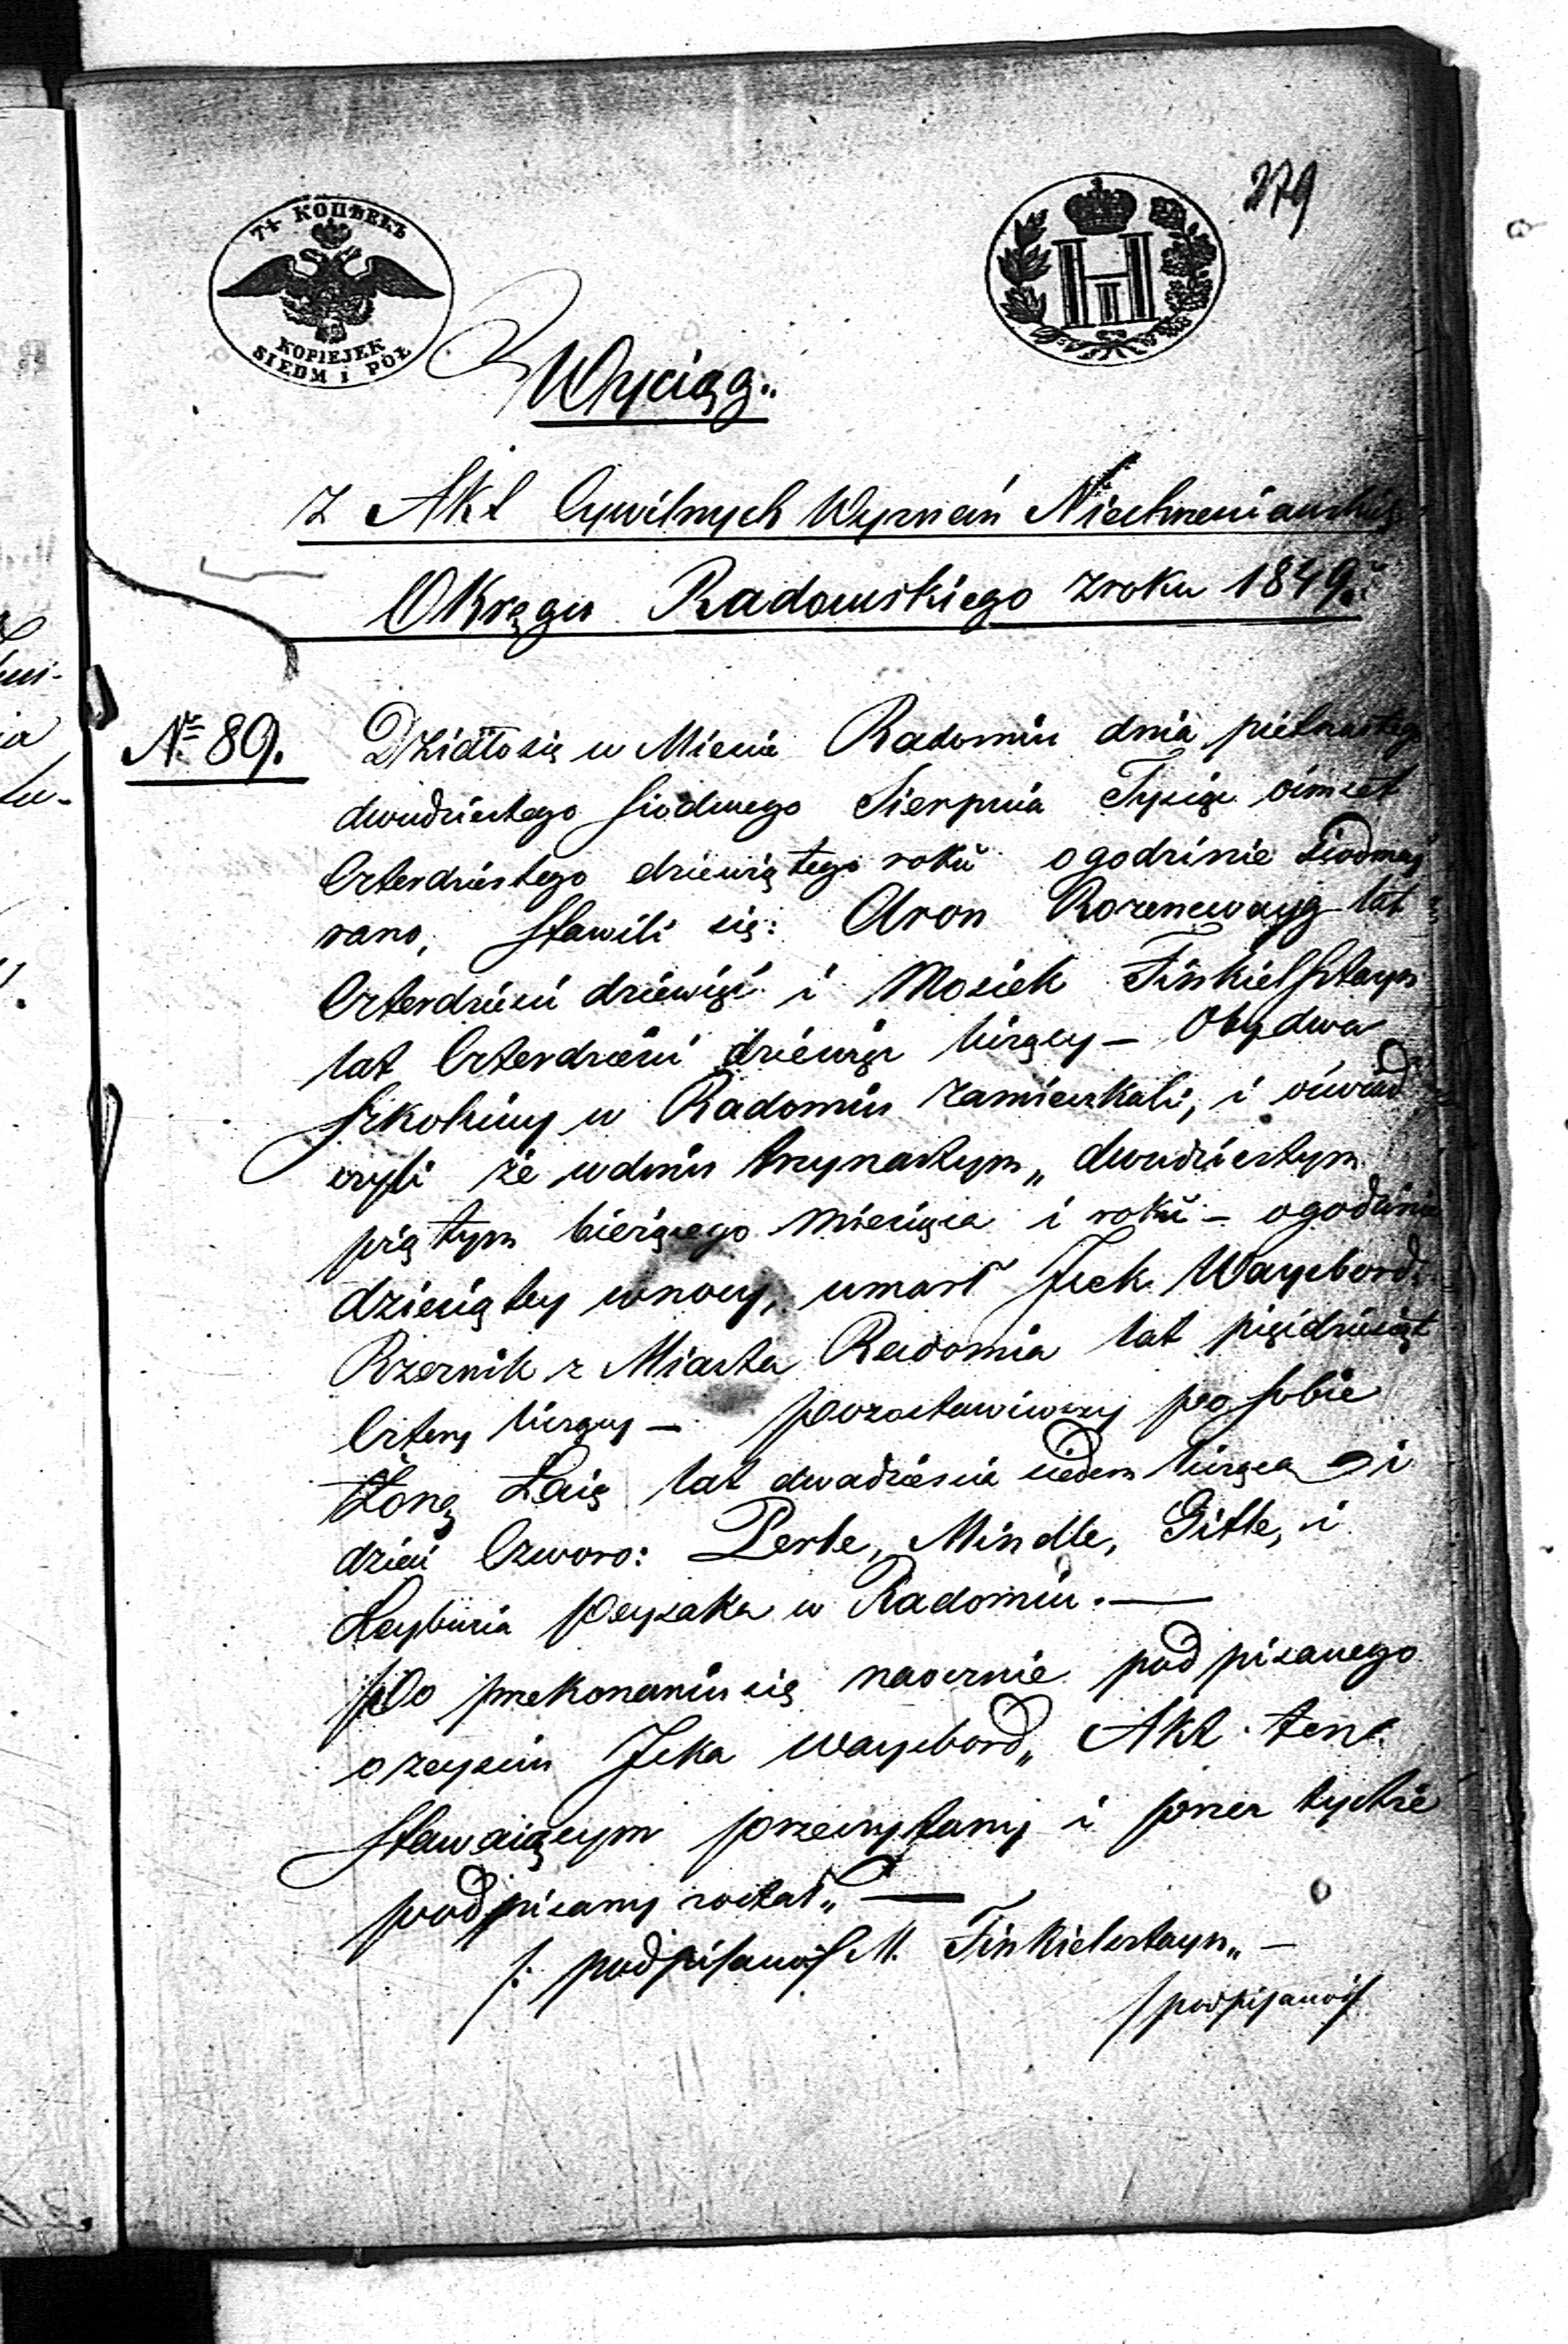 279
7½ КОПѢЕКЪ
KOPIEJEK
SIEDM I PÓŁ
Wyciąg.
z Akt Cywilnych Wyznań Niechrześciańskich
Okręgu Radomskiego z roku 1849.
№ 89. Działo się w Mieście Radomiu dnia pietnastego
dwudziestego siódmego Sierpnia Tysiąc ośmset
Czterdziestego dziewiątego roku o godzinie siódmey
rano, stawili się: Aron Rozenwayg lat
Czterdzieści dziewięć i Mosiek Finkielsztayn
lat Czterdzieści dziewięć liczący – Obydwa
Szkolnicy w Radomiu zamieszkali, i oświad
czyli że w dniu trzynastym „ dwudziestym
piątym bieżącego miesiąca i roku – o godzinie
dziesiątey w nocy, umarł Jcek Waysbord
Rzeznik z Miasta Radomia lat pięćdziesiąt
Cztery liczący – pozostawiwszy po sobie
Żonę Łaię lat dwadzieścia siedem liczącą i
dzieci Czworo: Perle, Mindle, Gitle, i
Leybusia Peysaka w Radomiu. —
Po przekonaniu się naocznie podpisanego
o zeyściu Jcka Waysbord „ Akt ten
stawaiącym przeczytany i przez tychże
podpisany został „ —
/: podpisanoś/ M. Finkielsztayn „ –
/podpisanoś/